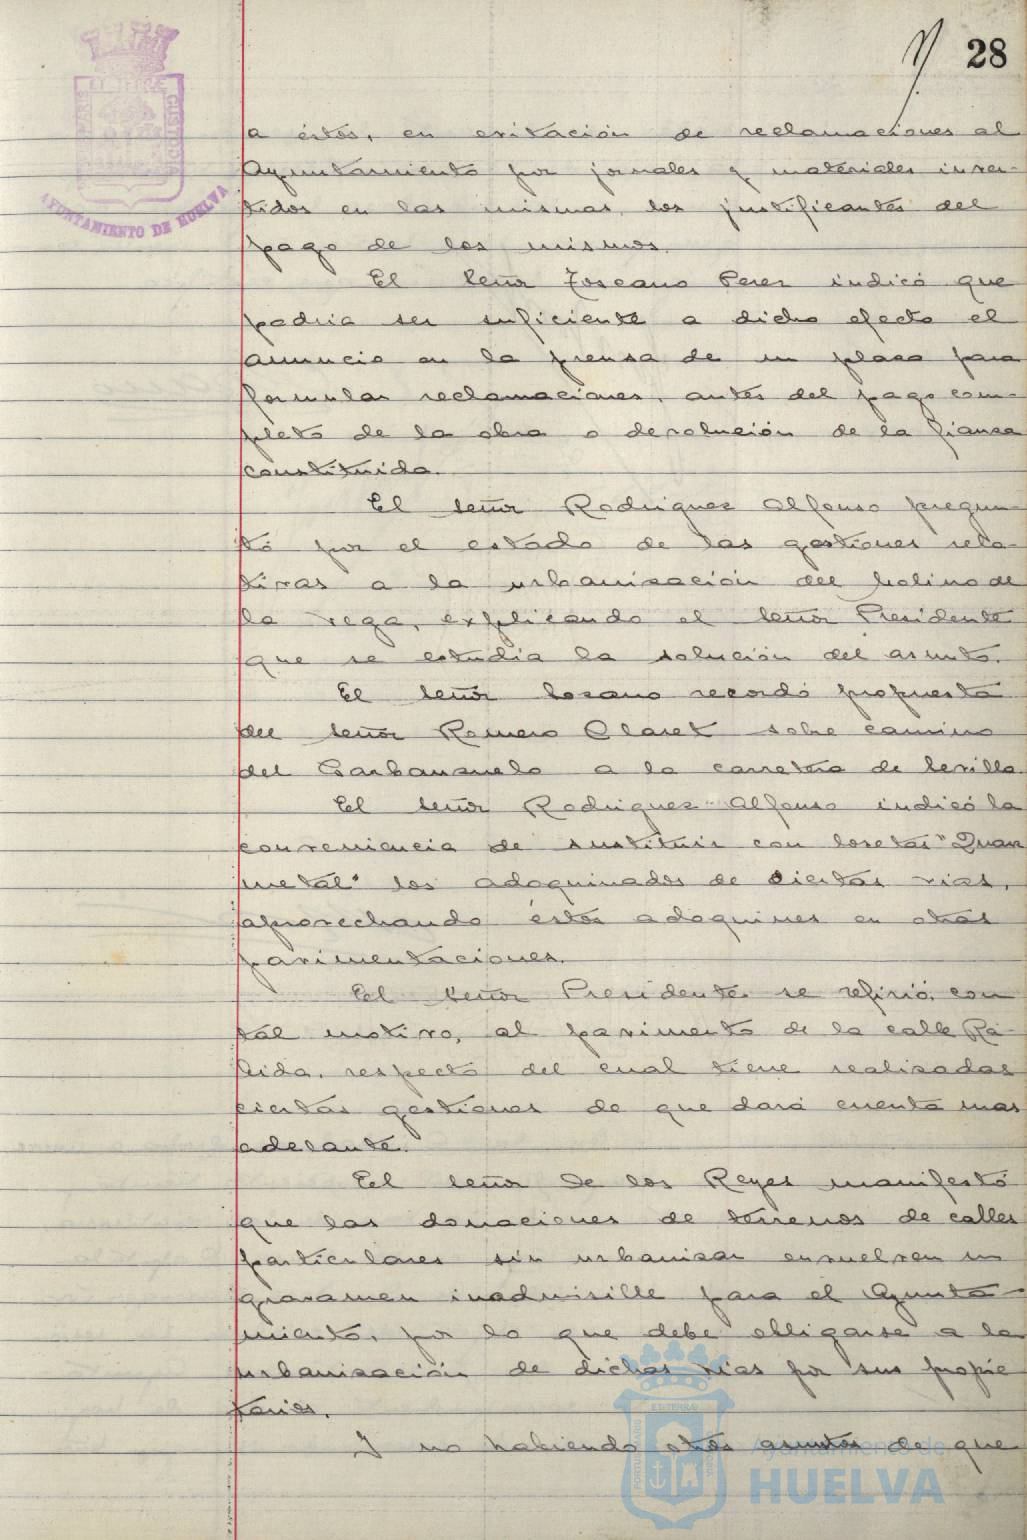 28
a éstos, en evitación de reclamaciones al
Ayuntamiento por jornales y materiales inver-
tidos en las mismas, los justificantes del
pago de los mismos.
El Señor Toscano Perez indicó que
podria ser suficiente a dicho efecto el
anuncio en la prensa de un plazo para
formular reclamaciones, antes del pago com-
pleto de la obra o devolución de la fianza
constituida.
El señor Rodriguez Alfonso pregun-
tó por el estado de las gestiones rela-
tivas a la urbanización del Molino de
la Vega, explicando el Señor Presidente
que se estudia la solución del asunto.
El Señor Lozano recordó propuesta
del Señor Romero Claret sobre camino
del Garbanzuelo a la carretera de Sevilla.
El Señor Rodriguez Alfonso indicó la
conveniencia de sustituir con losetas "Duar
metal" los adoquinados de ciertas vias,
aprovechando éstos adoquines en otras
pavimentaciones.
El Señor Presidente se refirió, con
tal motivo, al pavimento de la calle Rá-
bida, respecto del cual tiene realizadas
ciertas gestiones de que dará cuenta mas
adelante.
El Señor de los Reyes manifestó
que las donaciones de terrenos de calles
particulares sin urbanizar envuelven un
gravamen inadmisible para el Ayunta-
miento, por lo que debe obligarse a la
urbanización de dichas vias por sus propie
tarios.
Y no habiendo otros asuntos de que
AYUNTAMIENTO DE HUELVA
Ayuntamiento de
HUELVA